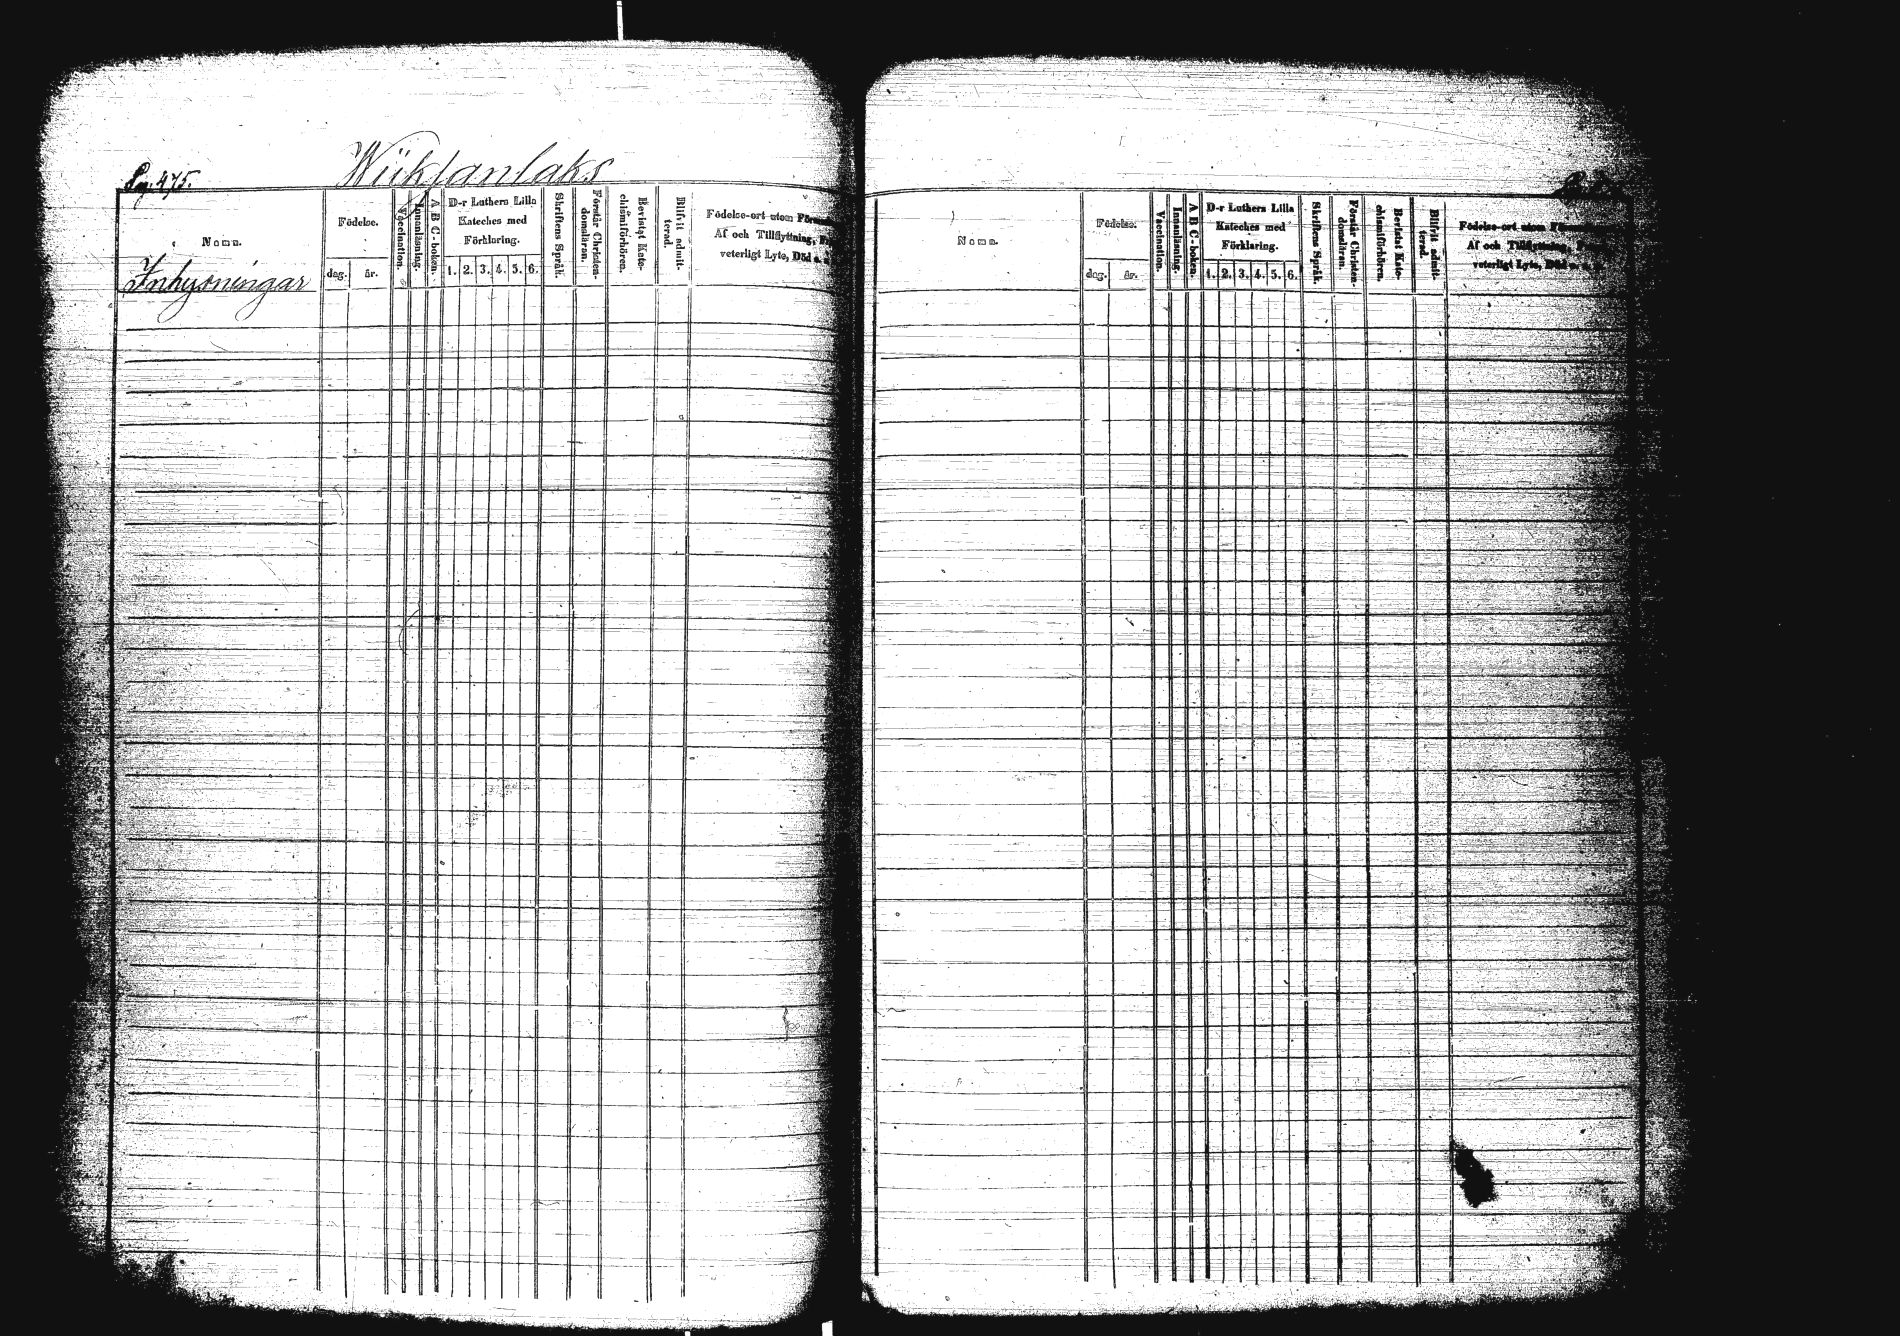 Pag. 475.
Wiikjanlaks
Namn.
Födelse.
dag.
år.
Vaccination.
Innanläsning.
A B C-boken.
D-r Luthers Lilla
Kateches med
Förklaring.
1. 2. 3. 4. 5. 6.
Skriftens Språk.
Förstår Christen-
domsläran.
Bevistat Kate-
chismiförhören.
Blifvit admit-
terad.
Födelse-ort utom
Af och Tillflyttning,
veterligt Lyte, Död
Inhysningar
Namn.
Födelse.
dag.
år.
Vaccination.
Innanläsning.
A B C-boken.
D-r Luthers Lilla
Kateches med
Förklaring.
1. 2. 3. 4. 5. 6.
Skriftens Språk.
Förstår Christen-
domsläran.
Bevistat Kate-
chismiförhören.
Blifvit admit-
terad.
Födelse-ort utom
Af och Tillflyttning,
veterligt Lyte, Död